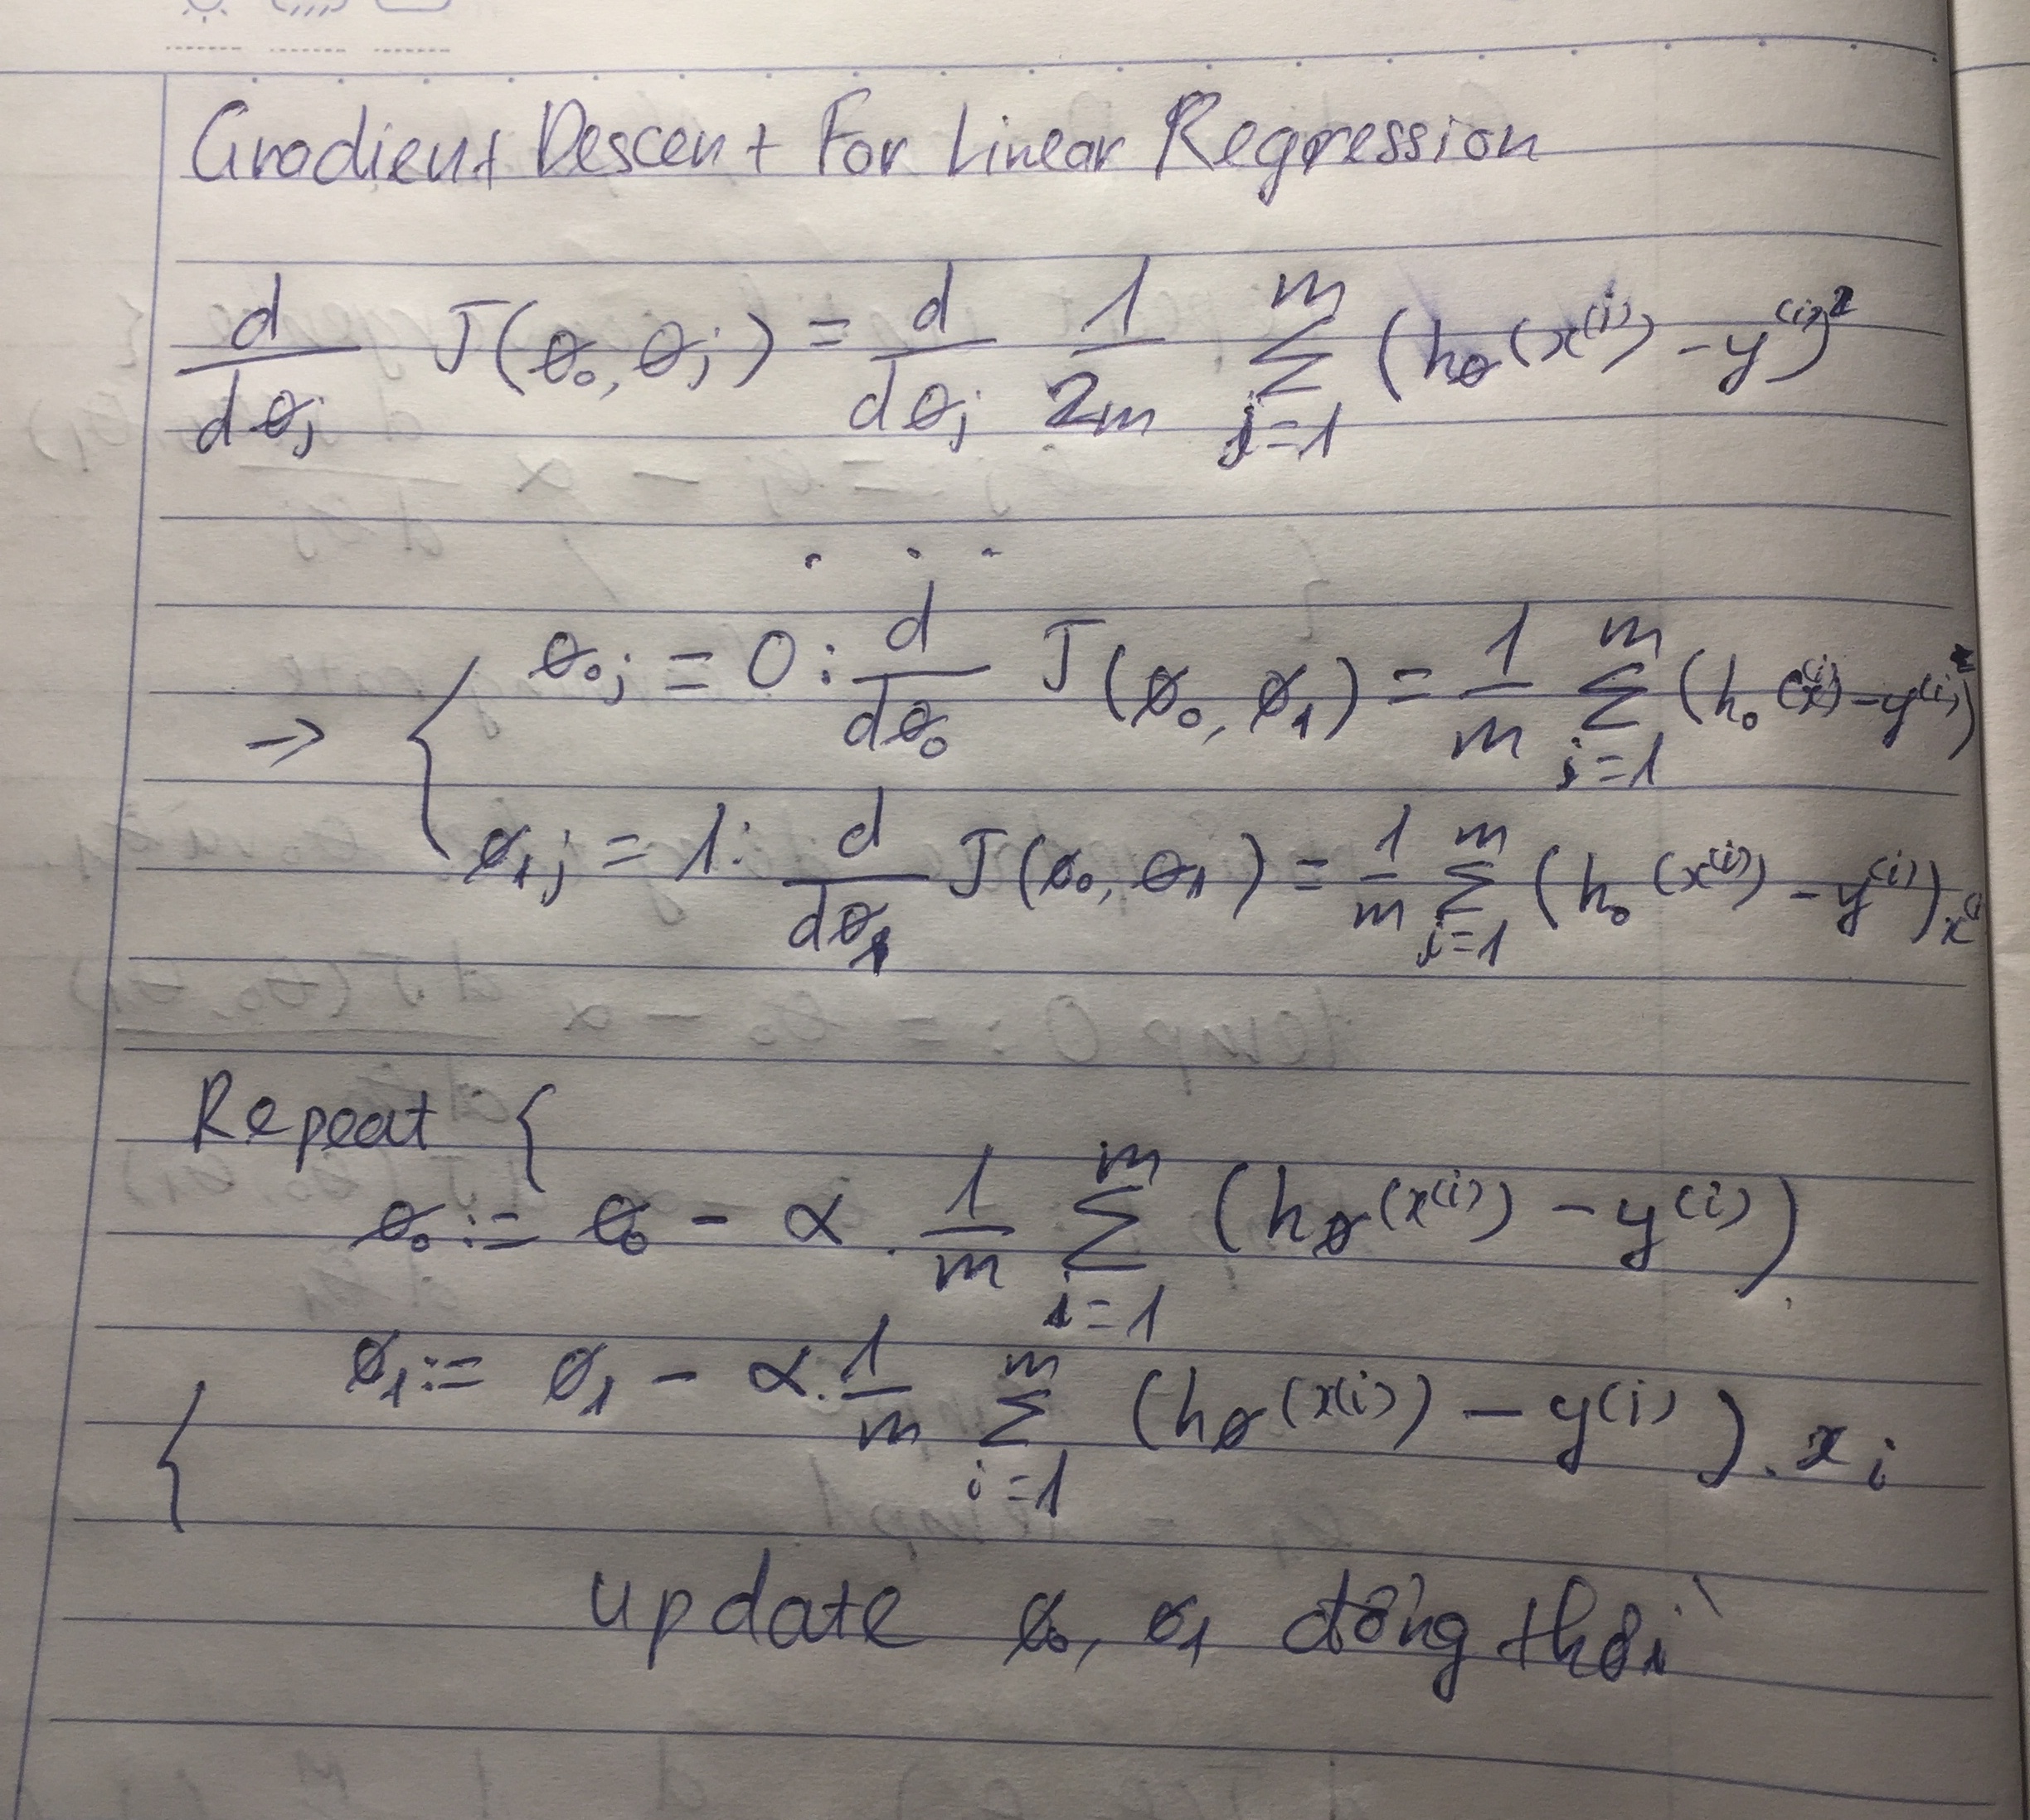 Gradient Descent For Linear Regression
d/dθj J(θ₀, θj) = d/dθj 1/2m Σ_{j=1}^{m} (hθ(x⁽ⁱ⁾) - y⁽ⁱ⁾)²
. . .
→ { θ₀j = 0 : d/dθ₀ J(θ₀, θ₁) = 1/m Σ_{i=1}^{m} (h₀(x⁽ⁱ⁾) - y⁽ⁱ⁾)
θ₁j = 1 : d/dθ₁ J(θ₀, θ₁) = 1/m Σ_{i=1}^{m} (h₀(x⁽ⁱ⁾) - y⁽ⁱ⁾) x⁽ⁱ
Repeat {
θ₀ := θ₀ - α . 1/m Σ_{i=1}^{m} (hθ(x⁽ⁱ⁾) - y⁽ⁱ⁾)
θ₁ := θ₁ - α . 1/m Σ_{i=1}^{m} (hθ(x⁽ⁱ⁾) - y⁽ⁱ⁾) . xᵢ
{
update θ₀, θ₁ đồng thời